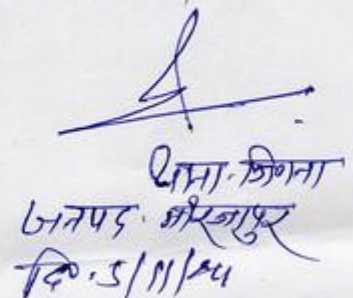 थाना. जिगना
जनपद. मीरजापुर
दि०. 5/11/24